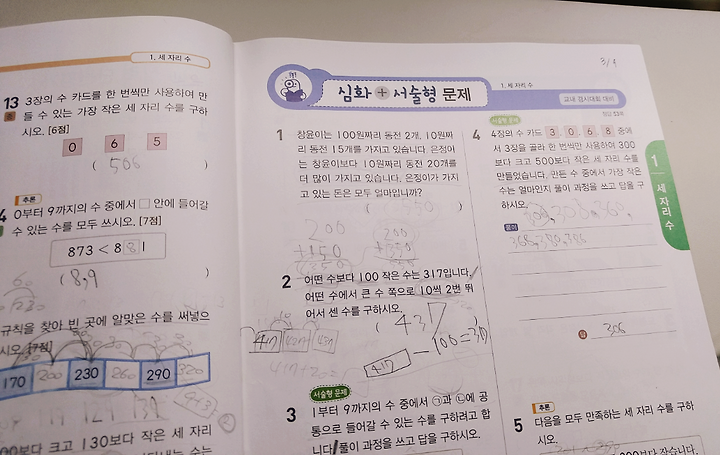 1. 세 자리 수
13 3장의 수 카드를 한 번씩만 사용하여 만
들 수 있는 가장 작은 세 자리 수를 구하
시오. [6점]
0 6 5
( 506 )
추론
4 0부터 9까지의 수 중에서 □ 안에 들어갈
수 있는 수를 모두 쓰시오. [7점]
873 < 881
(8,9 )
규칙을 찾아 빈 곳에 알맞은 수를 써넣으
시오. [7점]
170 200 230 260 290 320
00보다 크고 130보다 작은 세 자리
심화 + 서술형 문제
1. 세 자리 수
3/4
교내 경시대회 대비
1 창윤이는 100원짜리 동전 2개, 10원짜
리 동전 15개를 가지고 있습니다. 은정이
는 창윤이보다 10원짜리 동전 20개를
더 많이 가지고 있습니다. 은정이가 가지
고 있는 돈은 모두 얼마입니까?
( 550 )
200
+150
200
+350
2 어떤 수보다 100 작은 수는 317입니다.
어떤 수에서 큰 수 쪽으로 10씩 2번 뛰
어서 센 수를 구하시오.
( 437 )
417 - 100 = 317
서술형 문제
3 1부터 9까지의 수 중에서 ㉠과 ㉡에 공
통으로 들어갈 수 있는 수를 구하려고 합
니다. 풀이 과정을 쓰고 답을 구하시오.
서술형 문제
4 4장의 수 카드 3, 0, 6, 8 중에
서 3장을 골라 한 번씩만 사용하여 300
보다 크고 500보다 작은 세 자리 수를
만들었습니다. 만든 수 중에서 가장 작은
수는 얼마인지 풀이 과정을 쓰고 답을 구
하시오.
306, 308, 360,
풀이
368, 380, 386
답 306
추론
5 다음을 모두 만족하는 세 자리 수를 구하
시오.
1 세 자리 수